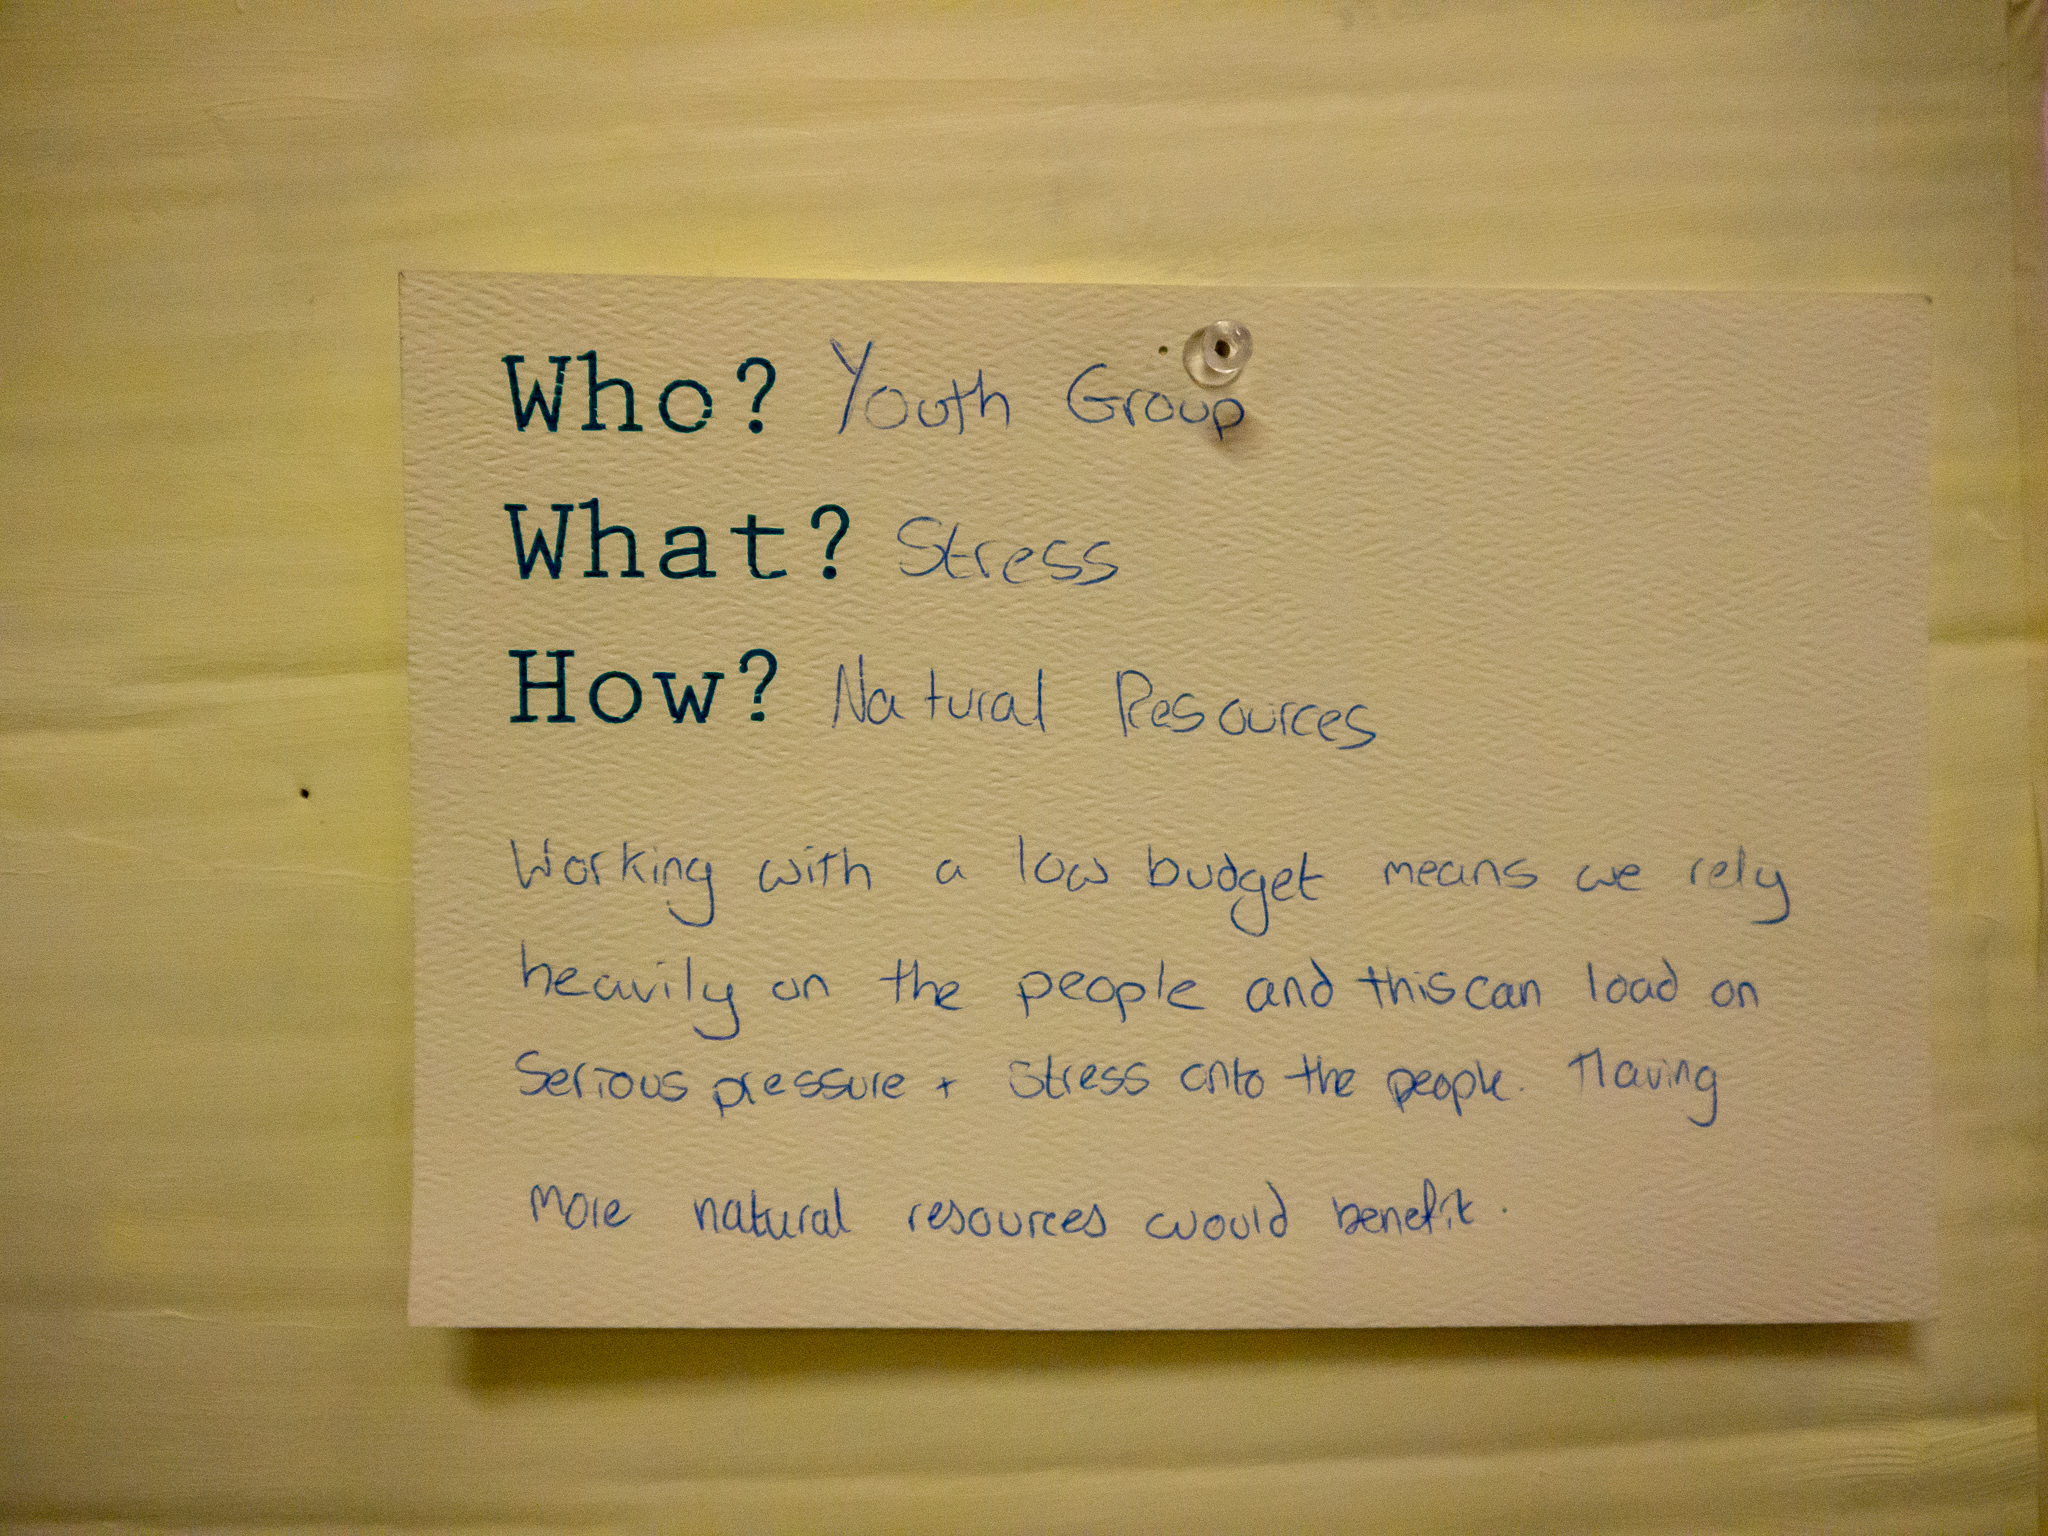 Who? Youth Group
What? Stress
How? Natural Resources
Working with a low budget means we rely
heavily on the people and this can load on
Serious pressure + stress onto the people. Having
more natural resources would benefit.